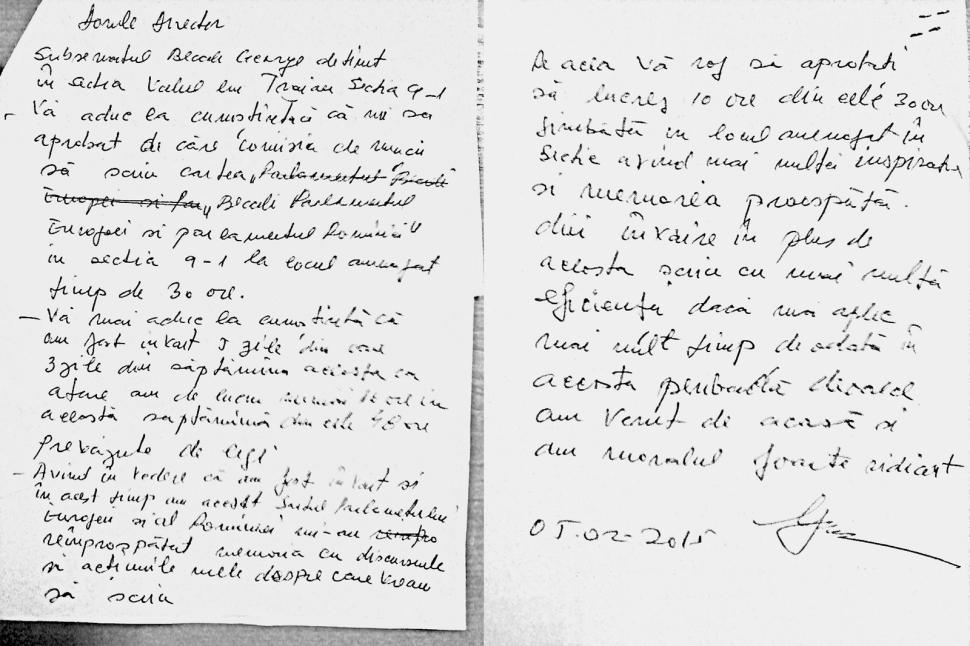 Domle Director
Subsemnatul Becali George deținut
în sectia Valul lui Traian Sectia 9-1
- Vă aduc la cunostiință că mi sa
aprobat de căre comisia de muncă
să scriu cartea „Parlamentul
Europei si „Becali Parlamentul
Europei si parlamentul României"
in sectia 9-1 la locul amenajat
timp de 30 ore.
- Vă mai aduc la cunostință că
am fost invoit 5 zile din care
3 zile din săptămîna aceasta ca
atare am de lucru numai 10 ore în
această saptămînă din cele 40 ore
prevăzute de legi
- Avind în vedere că am fost învoit si
în acest timp am accesat Siteul Parlamentului
Europei si al României mi-am
reîmprospătat memoria cu discursurile
si acțiunile mele despre care vreau
să scriu
De aceia vă rog să aprobati
să lucrez 10 ore din cele 30 ore
simbătă in locul amenajat în
Sectie avind mai multă inspiratie
si memorea proaspătă.
din învoire în plus de
aceasta scriu cu mai multă
eficiență dacă mă aplic
mai mult timp deodată în
aceasta perioadă deoarece
am venit de acasă si
am moralul foarte ridicat
05.02-2015